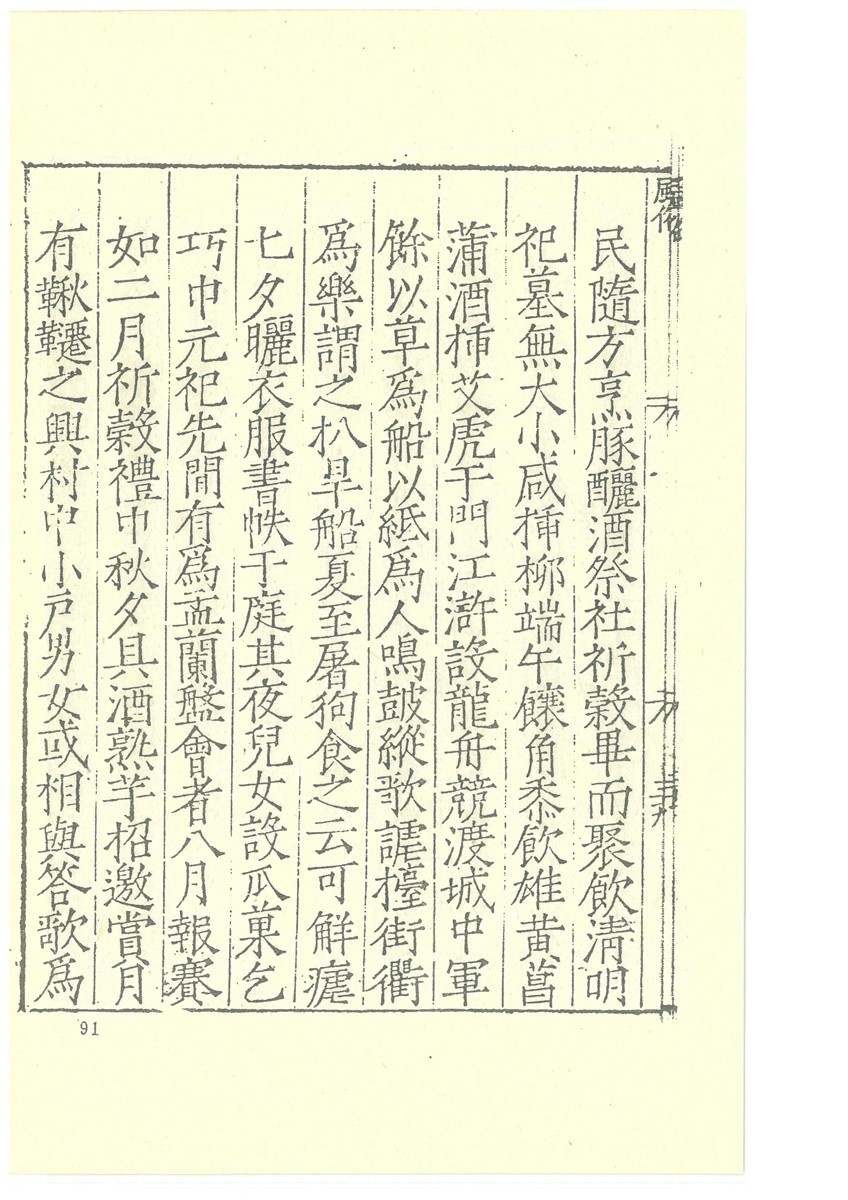 風俗
民隨方烹豚釃酒祭社祈穀畢而聚飲淸明
祀墓無大小咸揷柳端午饟角黍飲雄黃菖
蒲酒揷艾虎于門江滸設龍舟競渡城中軍
餘以草爲船以紙爲人鳴皷縱歌謔擡街衢
爲樂謂之扒旱船夏至屠狗食之云可解瘧
七夕曬衣服書帙于庭其夜兒女設瓜菓乞
巧中元祀先間有爲盂蘭盤會者八月報賽
如二月祈穀禮中秋夕具酒熟芋招邀賞月
有鞦韆之興村中小戸男女或相與答歌爲
91